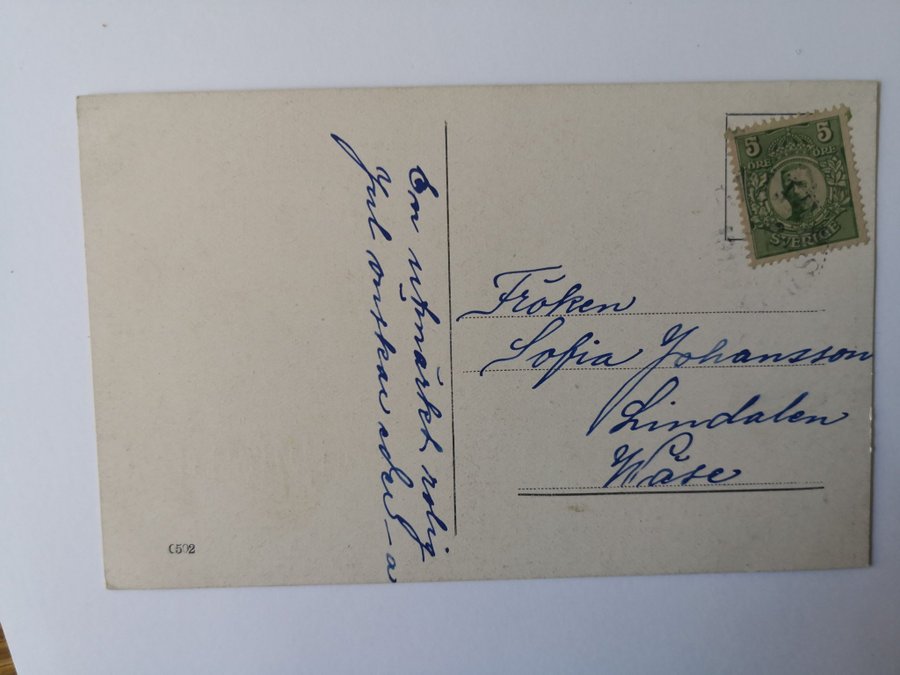 En utmärkt rolig
Jul önskas eder
5 5
ÖRE ÖRE
SVERIGE
Fröken
Sofia Johansson
Lindalen
Wäse